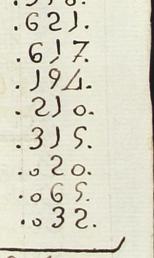 .621.
.617.
.194.
.210.
.315.
.020.
.065.
.032.